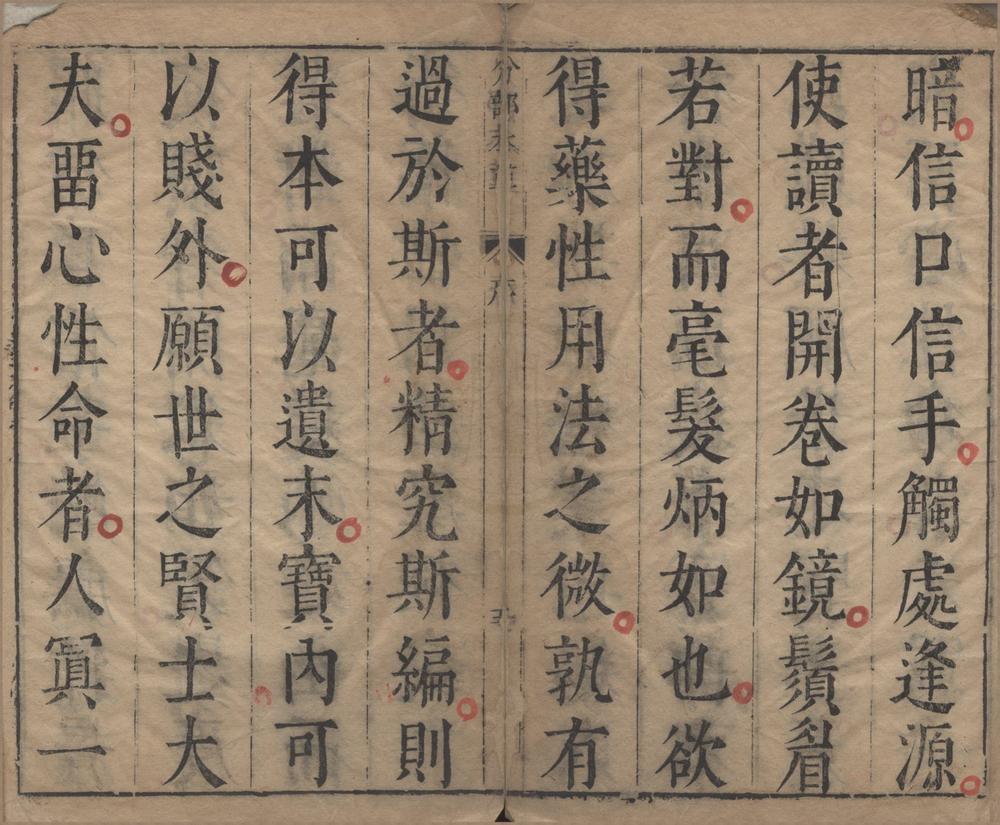 暗信口信手觸處逢源
使讀者開卷如鏡鬚眉
若對而毫髮炳如也欲
得藥性用法之微孰有
分部本草
序
過於斯者精究斯編則
得本可以遺末寶內可
以賤外願世之賢士大
夫畱心性命者人寘一